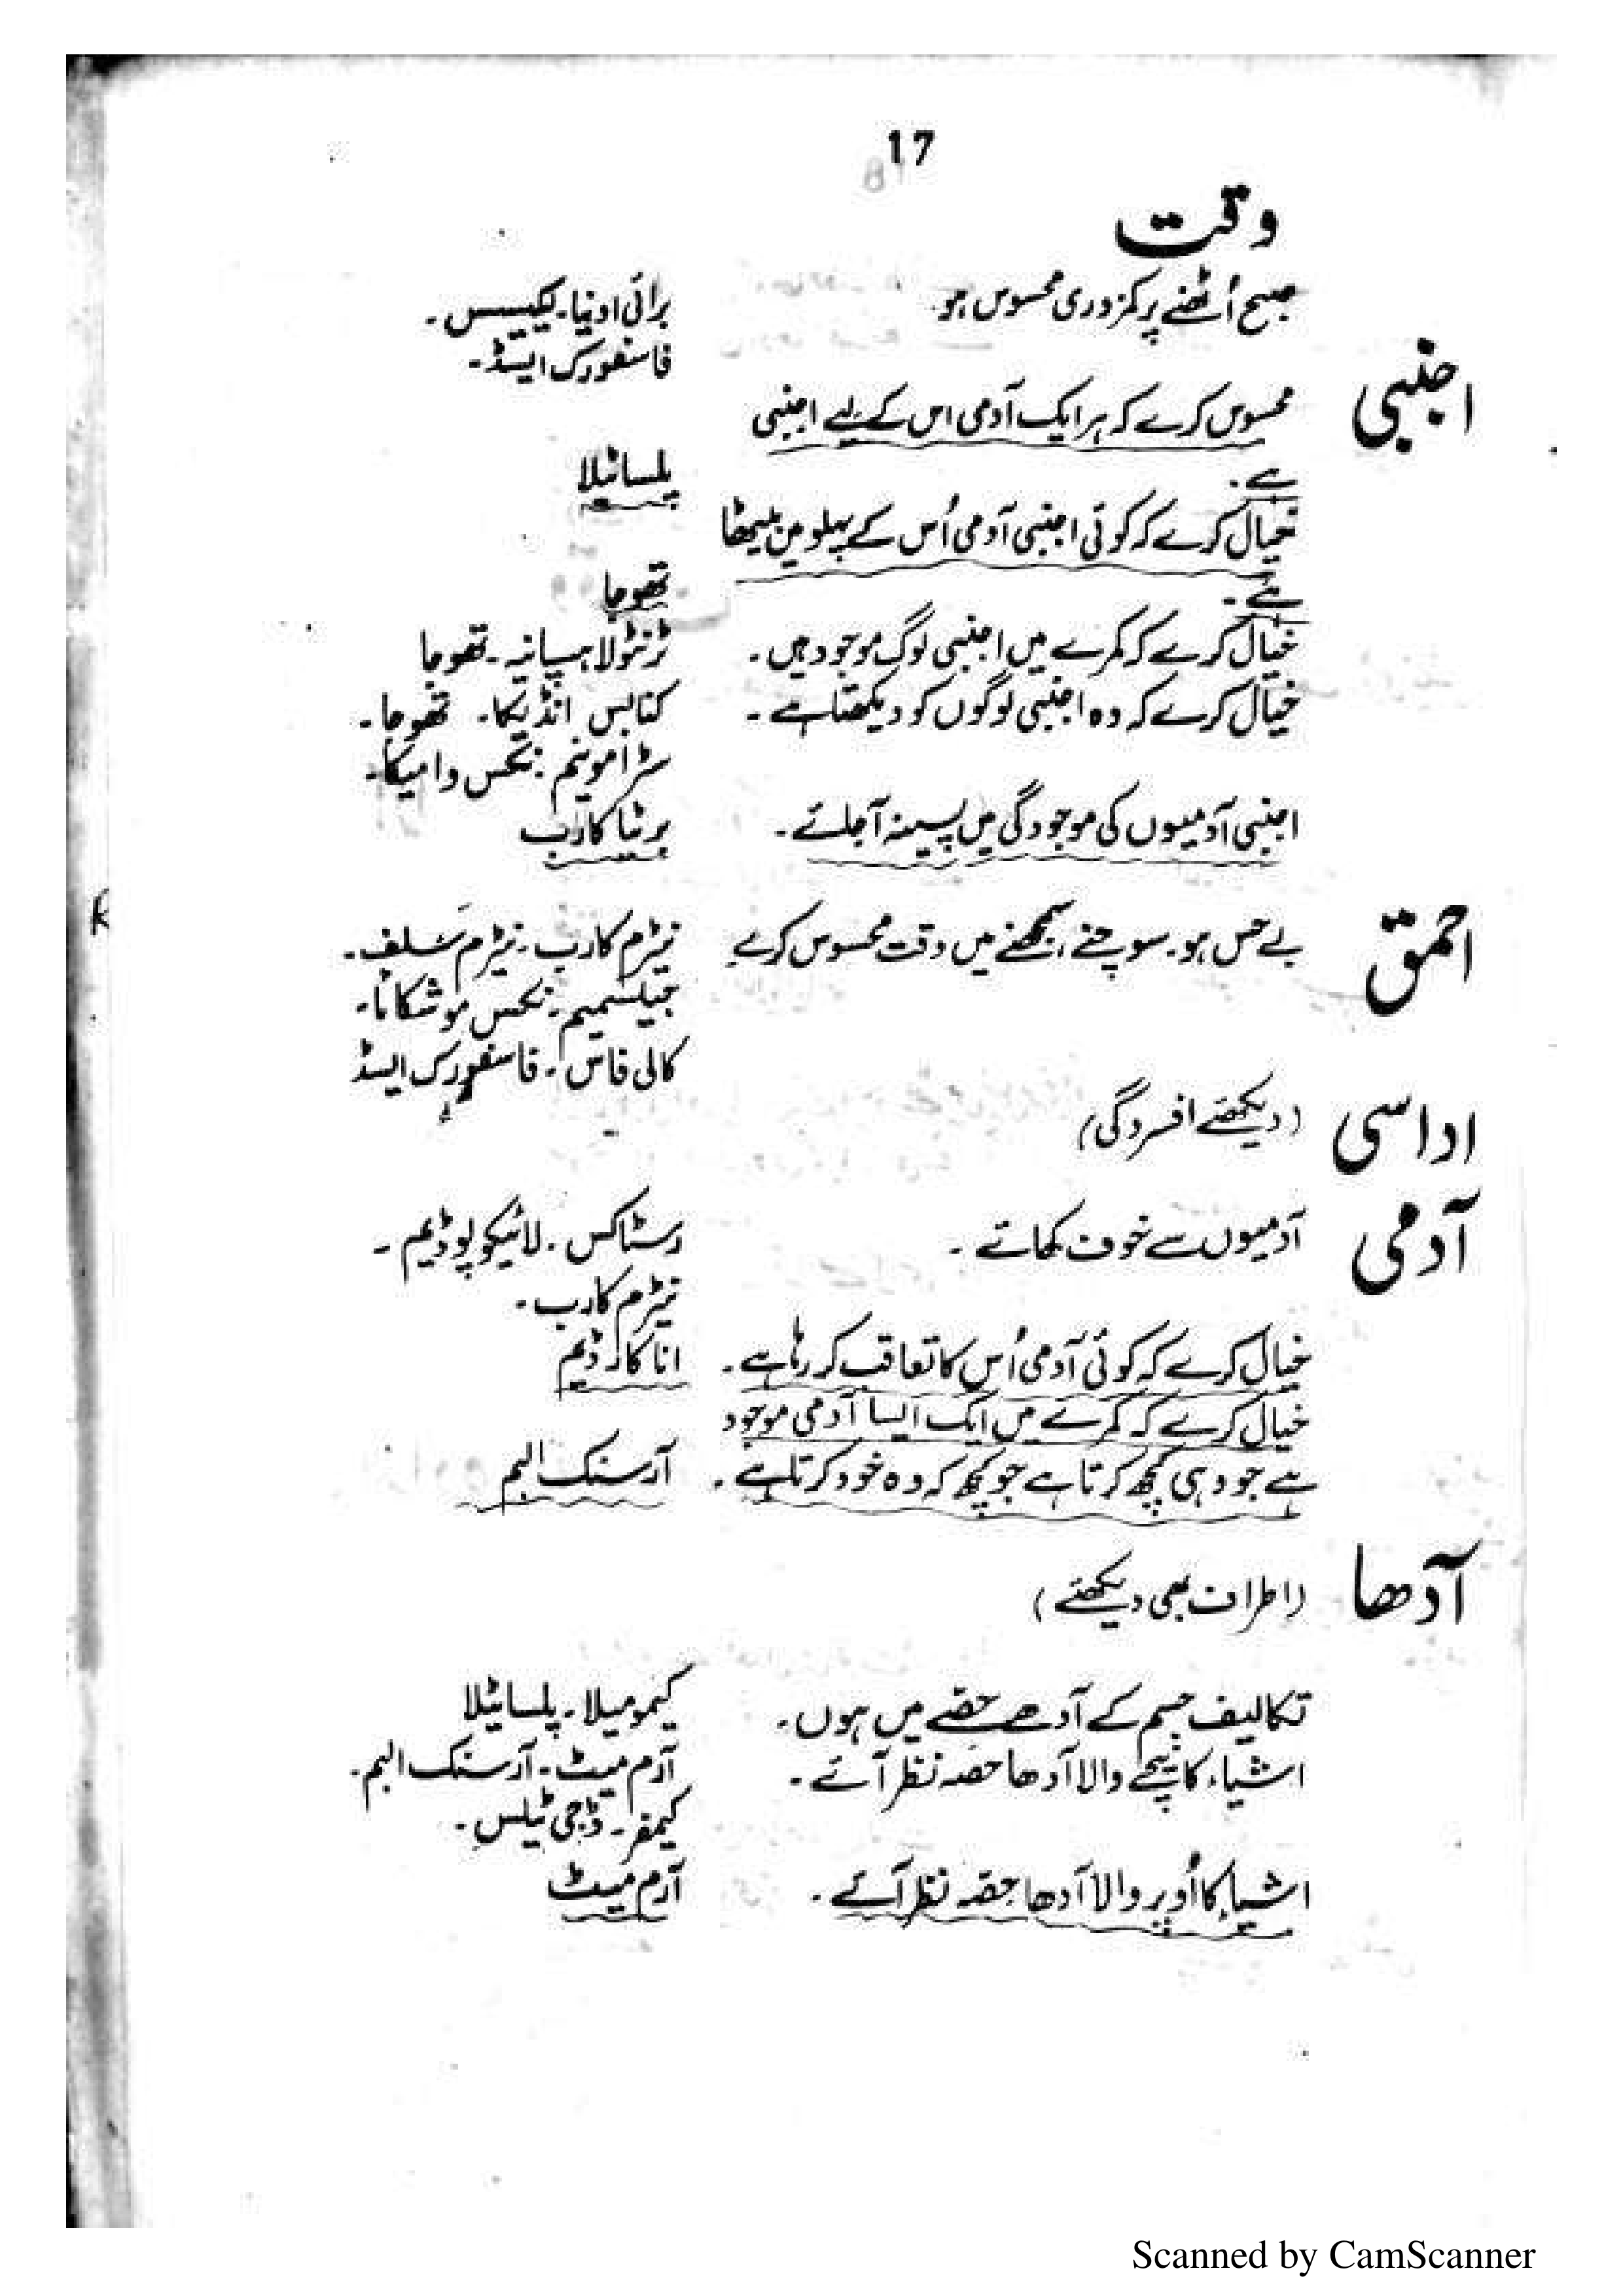 17
وقت
صبح اُٹھنے پر کمزوری محسوس ہو۔ برائی اونیا۔ لیکیسس۔
فاسفورک ایسڈ۔
اجنبی محسوس کرے کہ ہر ایک آدمی اس کے لیے اجنبی
ہے۔ پلساٹیلا
خیال کرے کہ کوئی اجنبی آدمی اُس کے پہلو میں بیٹھا
ہے۔ تھوجا
خیال کرے کہ کمرے میں اجنبی لوگ موجود ہیں۔ ٹرنٹولا ہسپانیہ۔ تھوجا
خیال کرے کہ وہ اجنبی لوگوں کو دیکھتا ہے۔ کنابس انڈیکا۔ تھوجا۔
سٹرامونیم۔ نکس وامیکا۔
اجنبی آدمیوں کی موجودگی میں پسینہ آجائے۔ برئیا کارب
احمق بے حس ہو۔ سوچنے، سمجھنے میں دقت محسوس کرے نیٹرم کارب۔ نیٹرم سلف۔
جیلسمیم۔ نکس موشکاٹا۔
کالی فاس۔ فاسفورک ایسڈ
اداسی (دیکھئے افسردگی)
آدمی آدمیوں سے خوف کھائے۔ رسٹاکس۔ لائیکوپوڈیم۔
نیٹرم کارب۔
خیال کرے کہ کوئی آدمی اُس کا تعاقب کر رہا ہے۔ اناکارڈیم
خیال کرے کہ کمرے میں ایک ایسا آدمی موجود
ہے جو وہی کچھ کرتا ہے جو کچھ کہ وہ خود کرتا ہے۔ آرسنک البم
آدھا (اطراف بھی دیکھئے)
تکالیف جسم کے آدھے حصّے میں ہوں۔ کیمومیلا۔ پلساٹیلا
اشیاء کا نیچے والا آدھا حصّہ نظر آئے۔ آرم میٹ۔ آرسنک البم۔
کیمفر۔ ڈجی ٹیلس۔
اشیاء کا اُوپر والا آدھا حصّہ نظر آئے۔ آرم میٹ
Scanned by CamScanner